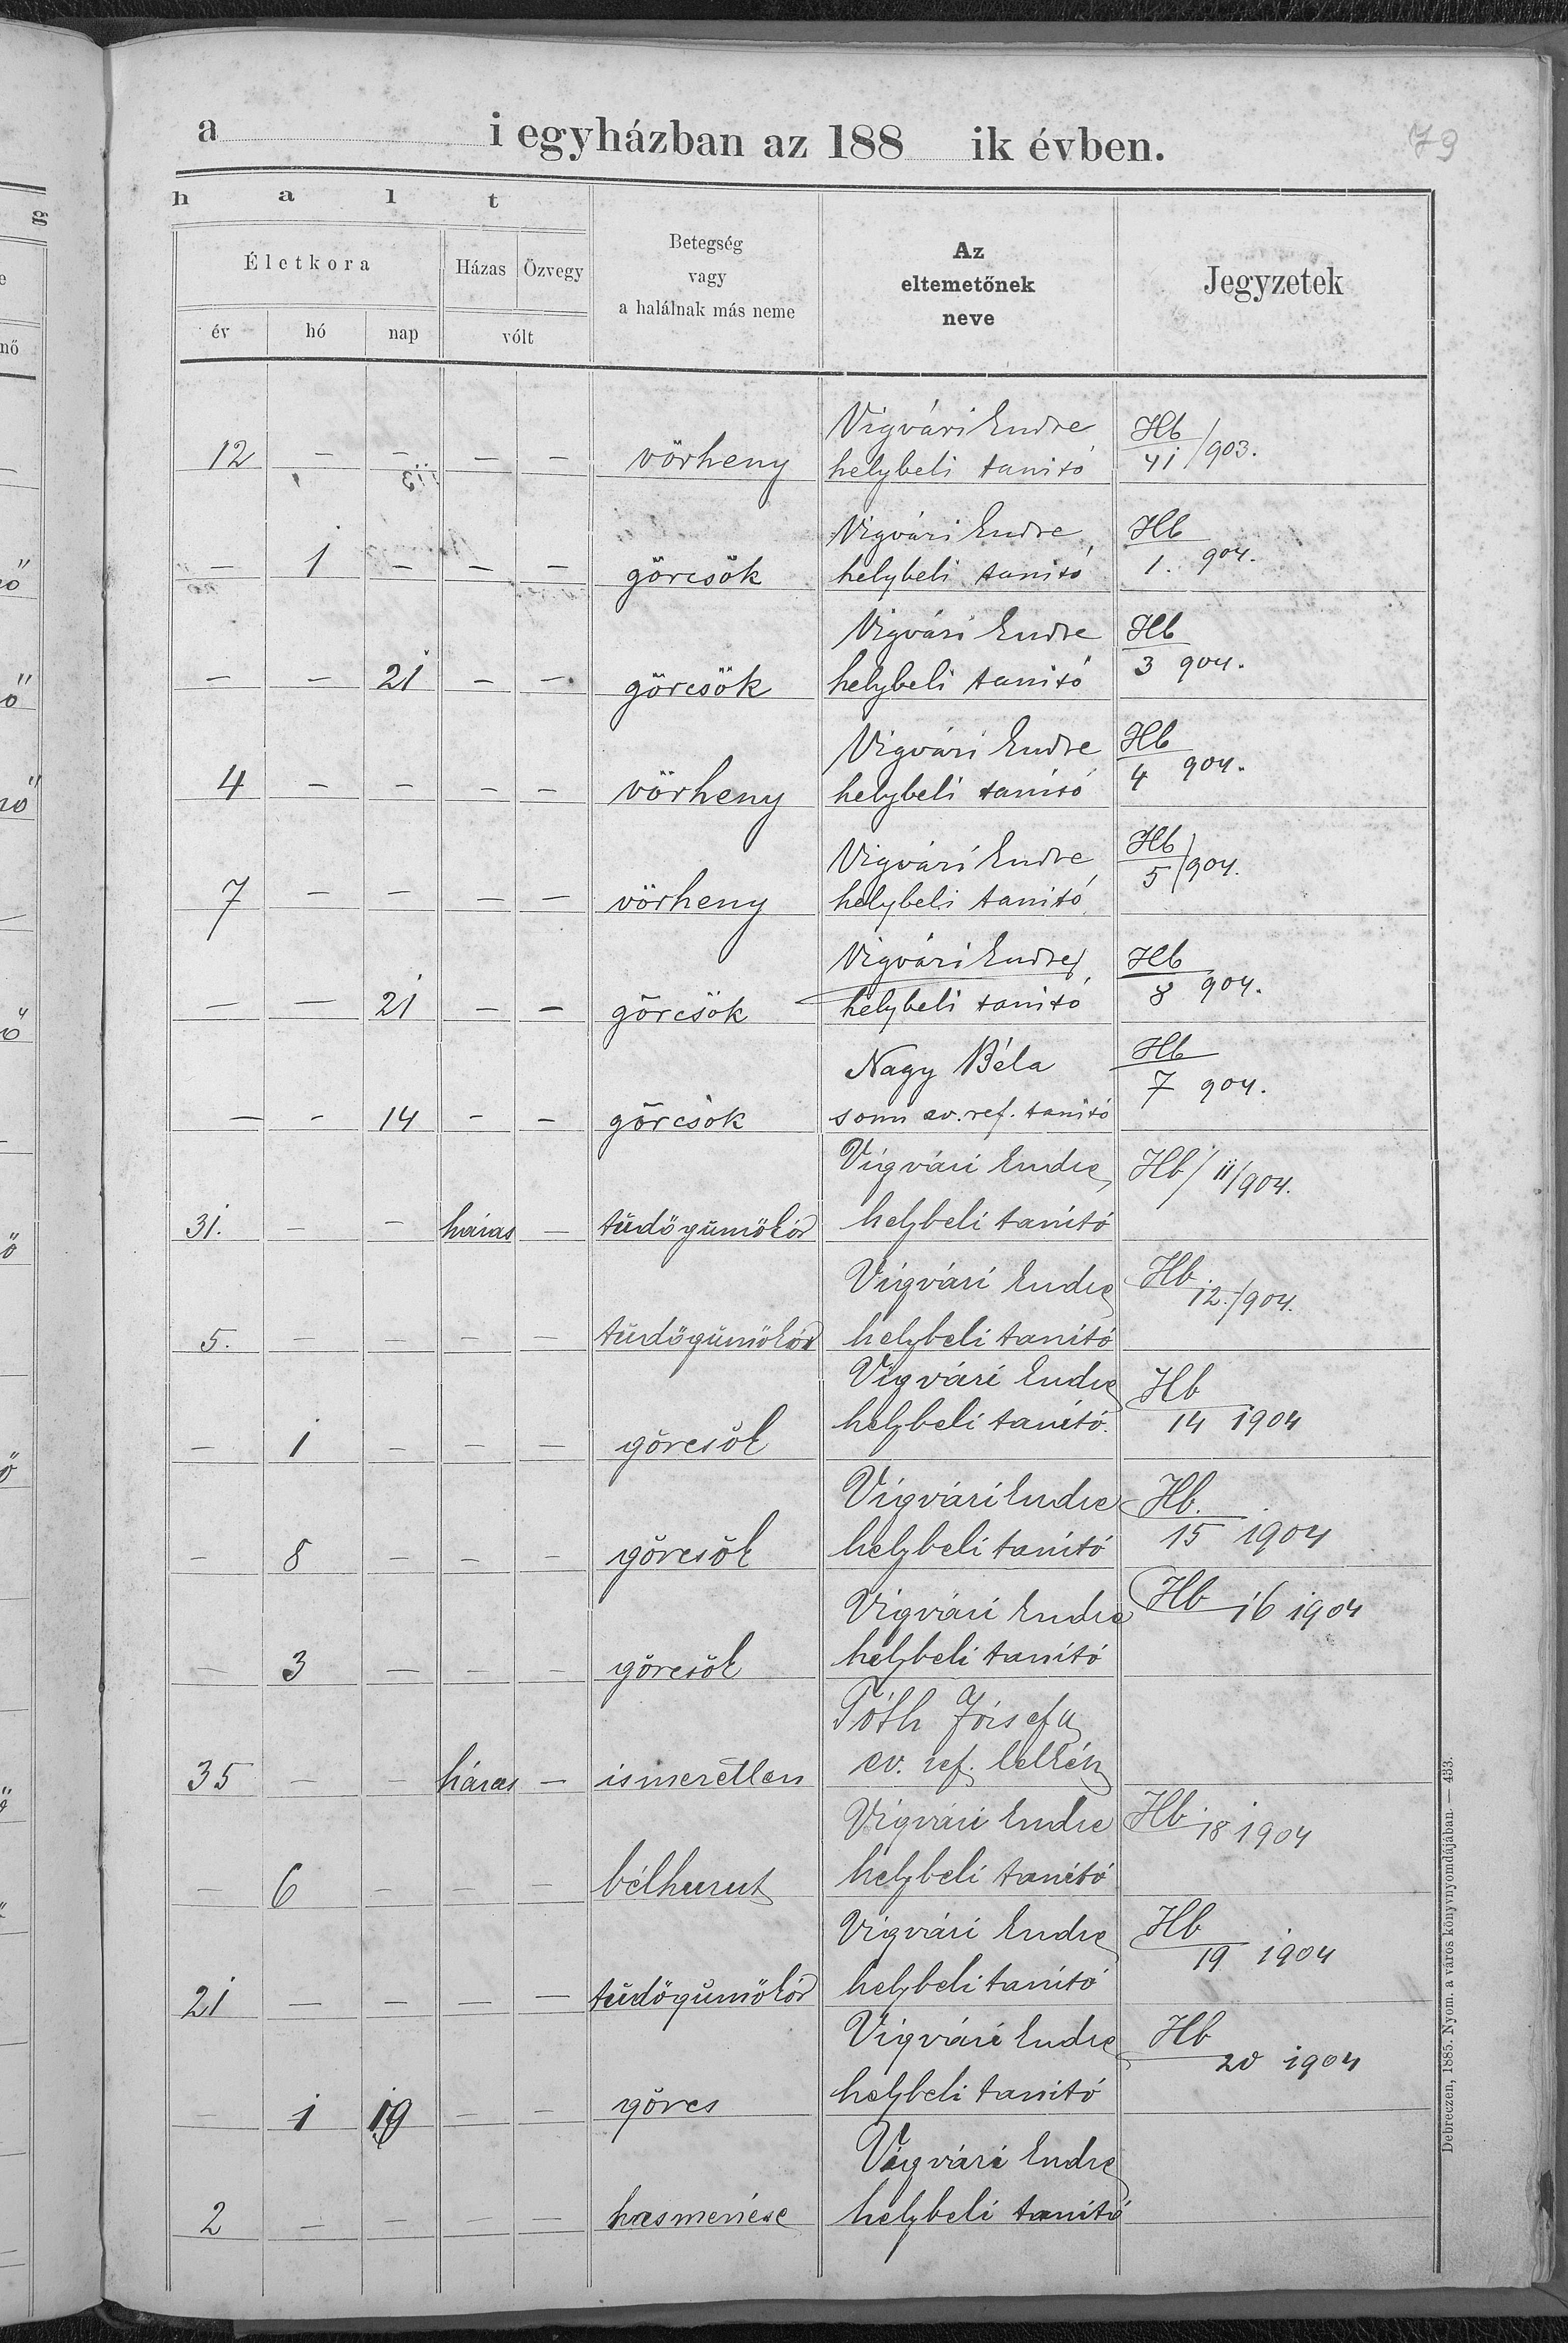 a i egyházban az 188 ik évben.
79
h a l t
Életkora
Házas Özvegy
Betegség
vagy
a halálnak más neme
Az
eltemetőnek
neve
Jegyzetek
év hó nap vólt
Vigvári Endre Hb
12 — — — — vörheny helybeli tanitó 41/903.
Vigvári Endre Hb
— 1 — — — görcsök helybeli tanitó 1. 904.
Vigvári Endre Hb
— — 21 — — görcsök helybeli tanitó 3 904.
Vigvári Endre Hb
4 — — — — vörheny helybeli tanitó 4 904.
Vigvári Endre Hb
7 — — — — vörheny helybeli tanitó 5/904.
Vigvári Endre Hb
— — 21 — — görcsök helybeli tanitó 8 904.
Nagy Béla Hb
— — 14 — — görcsök somi ev. ref. tanitó 7 904.
Vigvári Endre Hb/11/904.
31. — — házas — tüdőgümőkór helybeli tanitó
Vigvári Endre Hb
5. — — — — tüdőgümőkór helybeli tanitó 12./904.
Vigvári Endre Hb
— 1 — — — görcsök helybeli tanitó. 14 1904
Vigvári Endre Hb.
— 8 — — — görcsök helybeli tanitó 15 1904
Vigvári Endre Hb 16 1904
— 3 — — — görcsök helybeli tanitó
Tóth József
35 — — házas — ismeretlen ev. ref. lelkész
Vigvári Endre Hb 18 1904
— 6 — — — bélhurut helybeli tanitó
Vigvári Endre Hb
21 — — — — tüdőgümőkór helybeli tanitó 19 1904
Vigvári Endre Hb
— 1 — — görcs helybeli tanitó 20 1904
Vigvári Endre
2 — — — — hasmenése helybeli tanitó
Debreczen, 1885. Nyom. a város könyvnyomdájában. — 433.